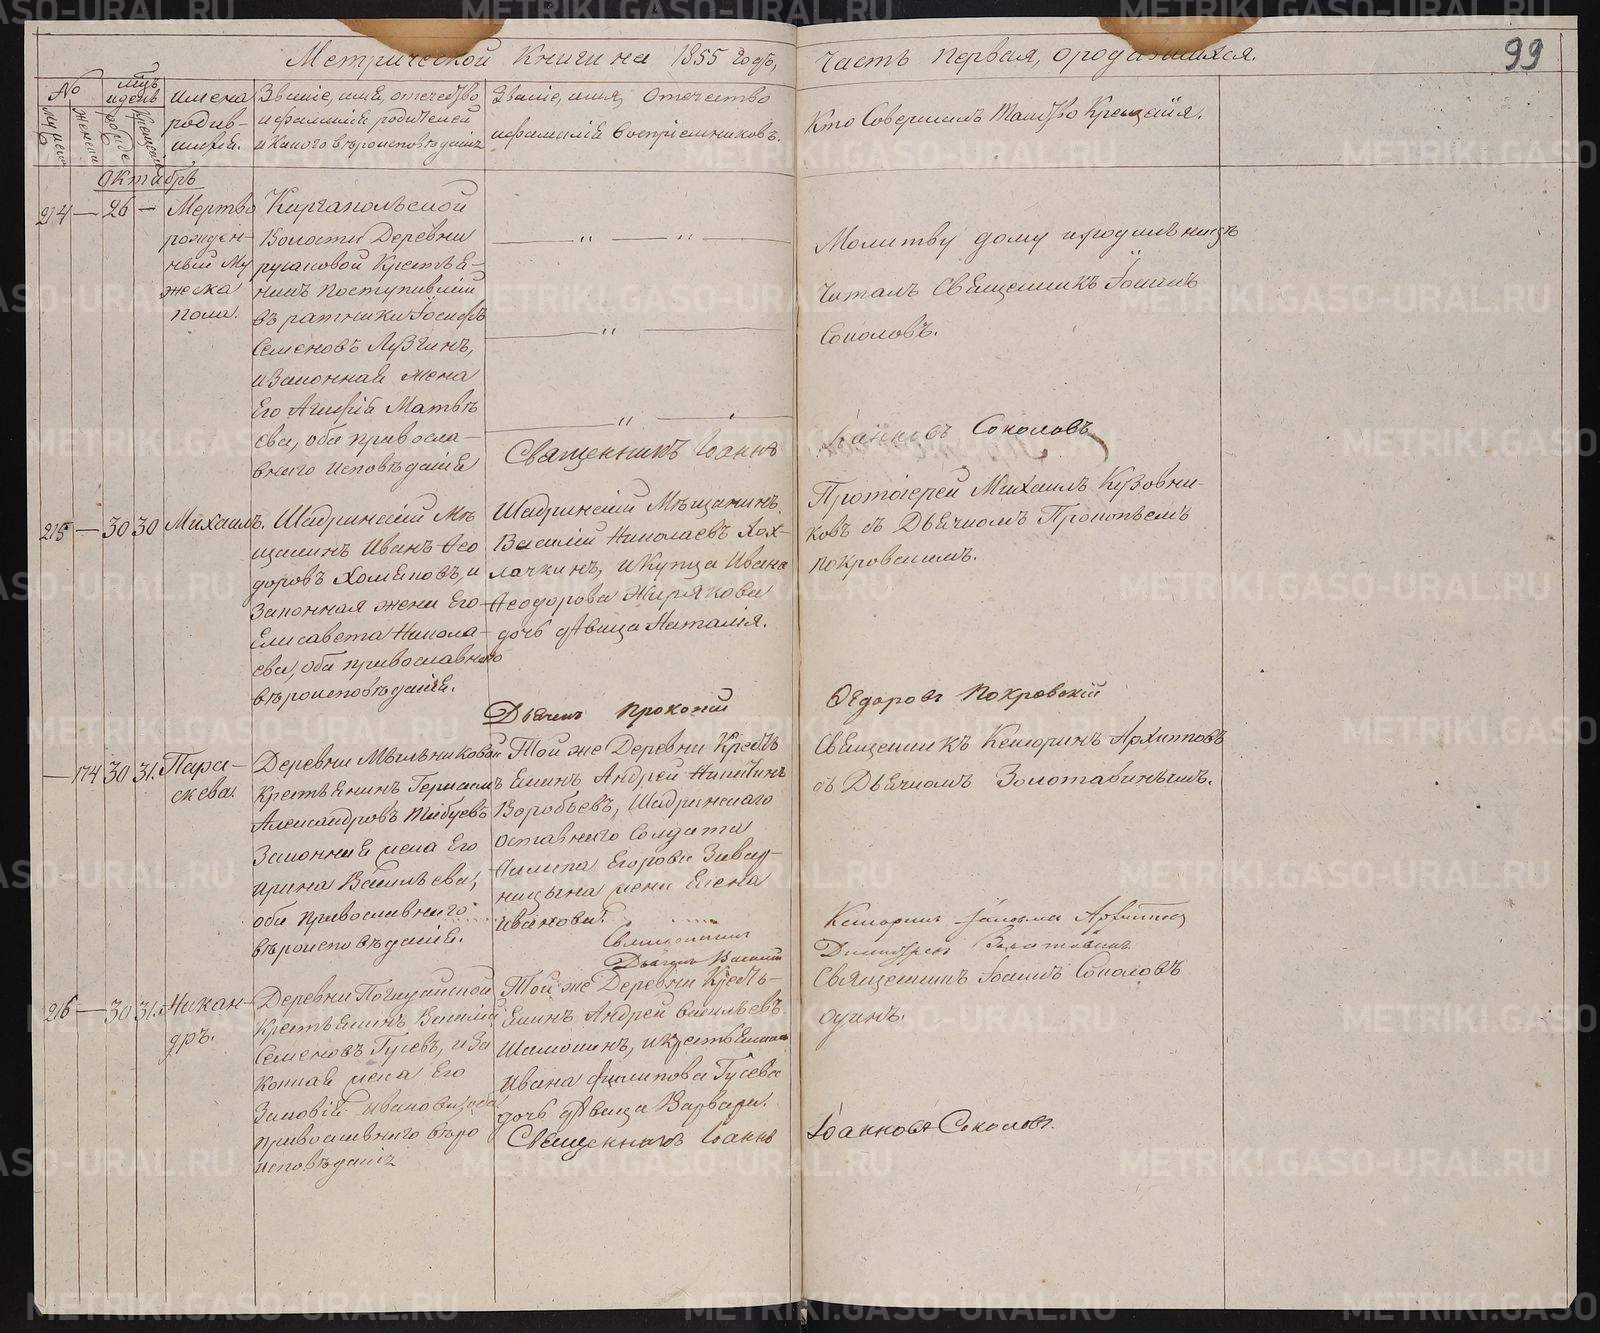 Метрической Книги на 1855 годъ,
часть первая, о родившихся.
99
№
мсцъ и день
имена родив-
шихся.
Званіе, имя, отечество
и фамилія родителей
и какого вѣроисповѣданія
Званіе, имя, Отечество
и фамилія Воспріемниковъ.
Кто Совершалъ Таинство Крещенія.
Октябрь
214 — 26 —
Мертво
рожден-
ный му
жеска
пола.
Каргапольской
Волости Деревни
Крестья-
нинъ поступившій
въ ратники Іосифъ
Семеновъ Лузгинъ,
и Законная жена
Его Агафія Матвѣ
ева, оба правосла-
внаго исповѣданія
Молитву дому и родильницѣ
читалъ Священникъ Іоаннъ
Соколовъ.
Священникъ Іоаннъ
Іанновъ Соколовъ
215 — 30 30
Михаилъ.
Шадринскій Мѣ
щанинъ Иванъ Ѳео
доровъ, и
Законная жена Его
Елисавета Никола-
ева, оба православнаго
вѣроисповѣданія.
Шадринскій Мѣщанинъ
Василій Николаевъ Хох-
лачкинъ, и Купца Ивана
Ѳеодорова Жирякова
дочь дѣвица Наталія.
Протоіерей Михаилъ Кузовни-
ковъ съ Дьячкомъ Прокопьемъ
Покровскимъ.
Дьячекъ Прокопій
Ѳедоровъ Покровскій
— 174 30 31.
Пара-
скева.
Деревни Мыльниковой
Крестьянинъ Герасимъ
Александровъ
Законная жена Его
Ирина Васильева,
оба православнаго
вѣроисповѣданія.
Той же Деревни Кресть
янинъ Андрей Никитинъ
Воробьевъ, Шадринскаго
отставнаго Солдата
Филипа Егорова
жена Елена
Иванова.
Священникъ Архиповъ
съ Дьячкомъ Золотавинымъ.
Священникъ
Дьячекъ Василій
216 — 30 31.
Никан-
дръ.
Деревни Погадайской
Крестьянинъ Василій
Семеновъ Гусевъ, и За
конная жена Его
Зиновія Иванова, оба
православнаго вѣро
исповѣданія
Той же Деревни Кресть-
янинъ Андрей Васильевъ
и Крестьянина
Ивана Филипова Гусева
дочь дѣвица Варвара.
Священникъ Іоаннъ Соколовъ
одинъ.
Священникъ Іоаннъ
Іоанновъ Соколовъ.
METRIKI.GASO-URAL.RU